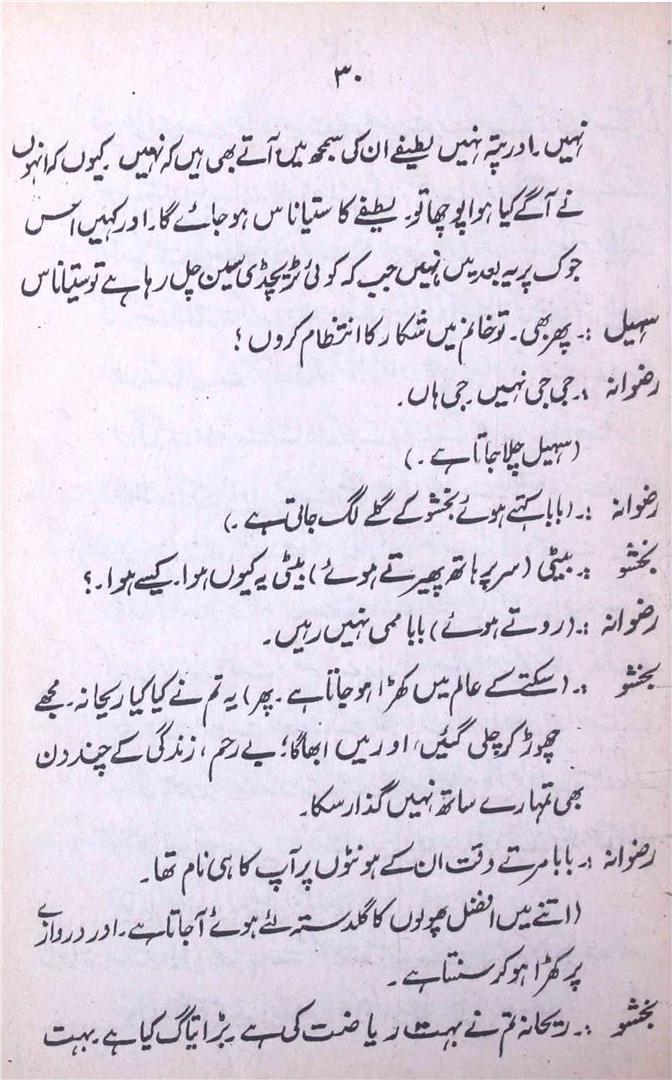 ۳۰
نہیں۔ اور پتہ نہیں لطیفے ان کی سمجھ میں آتے بھی ہیں کہ نہیں۔ کیوں کہ انہوں
نے آگے گیا ہوا پوچھا تو۔ لطیفے کا ستیاناس ہو جائے گا۔ اور کہیں اس
جوک پر یہ بعد میں نہیں جب کہ کوئی ٹریجڈی سین چل رہا ہے تو ستیاناس
سہیل :۔ پھر بھی۔ تو خانم میں شکار کا انتظام کروں !
رضوانہ :۔ جی جی نہیں۔ جی ہاں۔
(سہیل چلا جاتا ہے۔)
رضوانہ :۔ (بابا کہتے ہوئے بخشو کے گلے لگ جاتی ہے۔)
بخشو :۔ بیٹی (سر پر ہاتھ پھیرتے ہوئے) بیٹی یہ کیوں ہوا۔ کیسے ہوا۔؟
رضوانہ :۔ (روتے ہوئے) بابا ممی نہیں رہیں۔
بخشو :۔ (سکتے کے عالم میں کھڑا ہو جاتا ہے۔ پھر) یہ تم نے کیا کیا ریحانہ۔ مجھے
چھوڑ کر چلی گئیں، اور میں ابھاگا؛ بے رحم، زندگی کے چند دن
بھی تمہارے ساتھ نہیں گذار سکا۔
رضوانہ :۔ بابا مرتے وقت ان کے ہونٹوں پر آپ کا ہی نام تھا۔
(اتنے میں افضل پھولوں کا گلدستہ لئے ہوئے آ جاتا ہے۔ اور دروازے
پر کھڑا ہو کر سنتا ہے۔
بخشو :۔ ریحانہ تم نے بہت ریاضت کی ہے۔ بڑا تیاگ کیا ہے۔ بہت